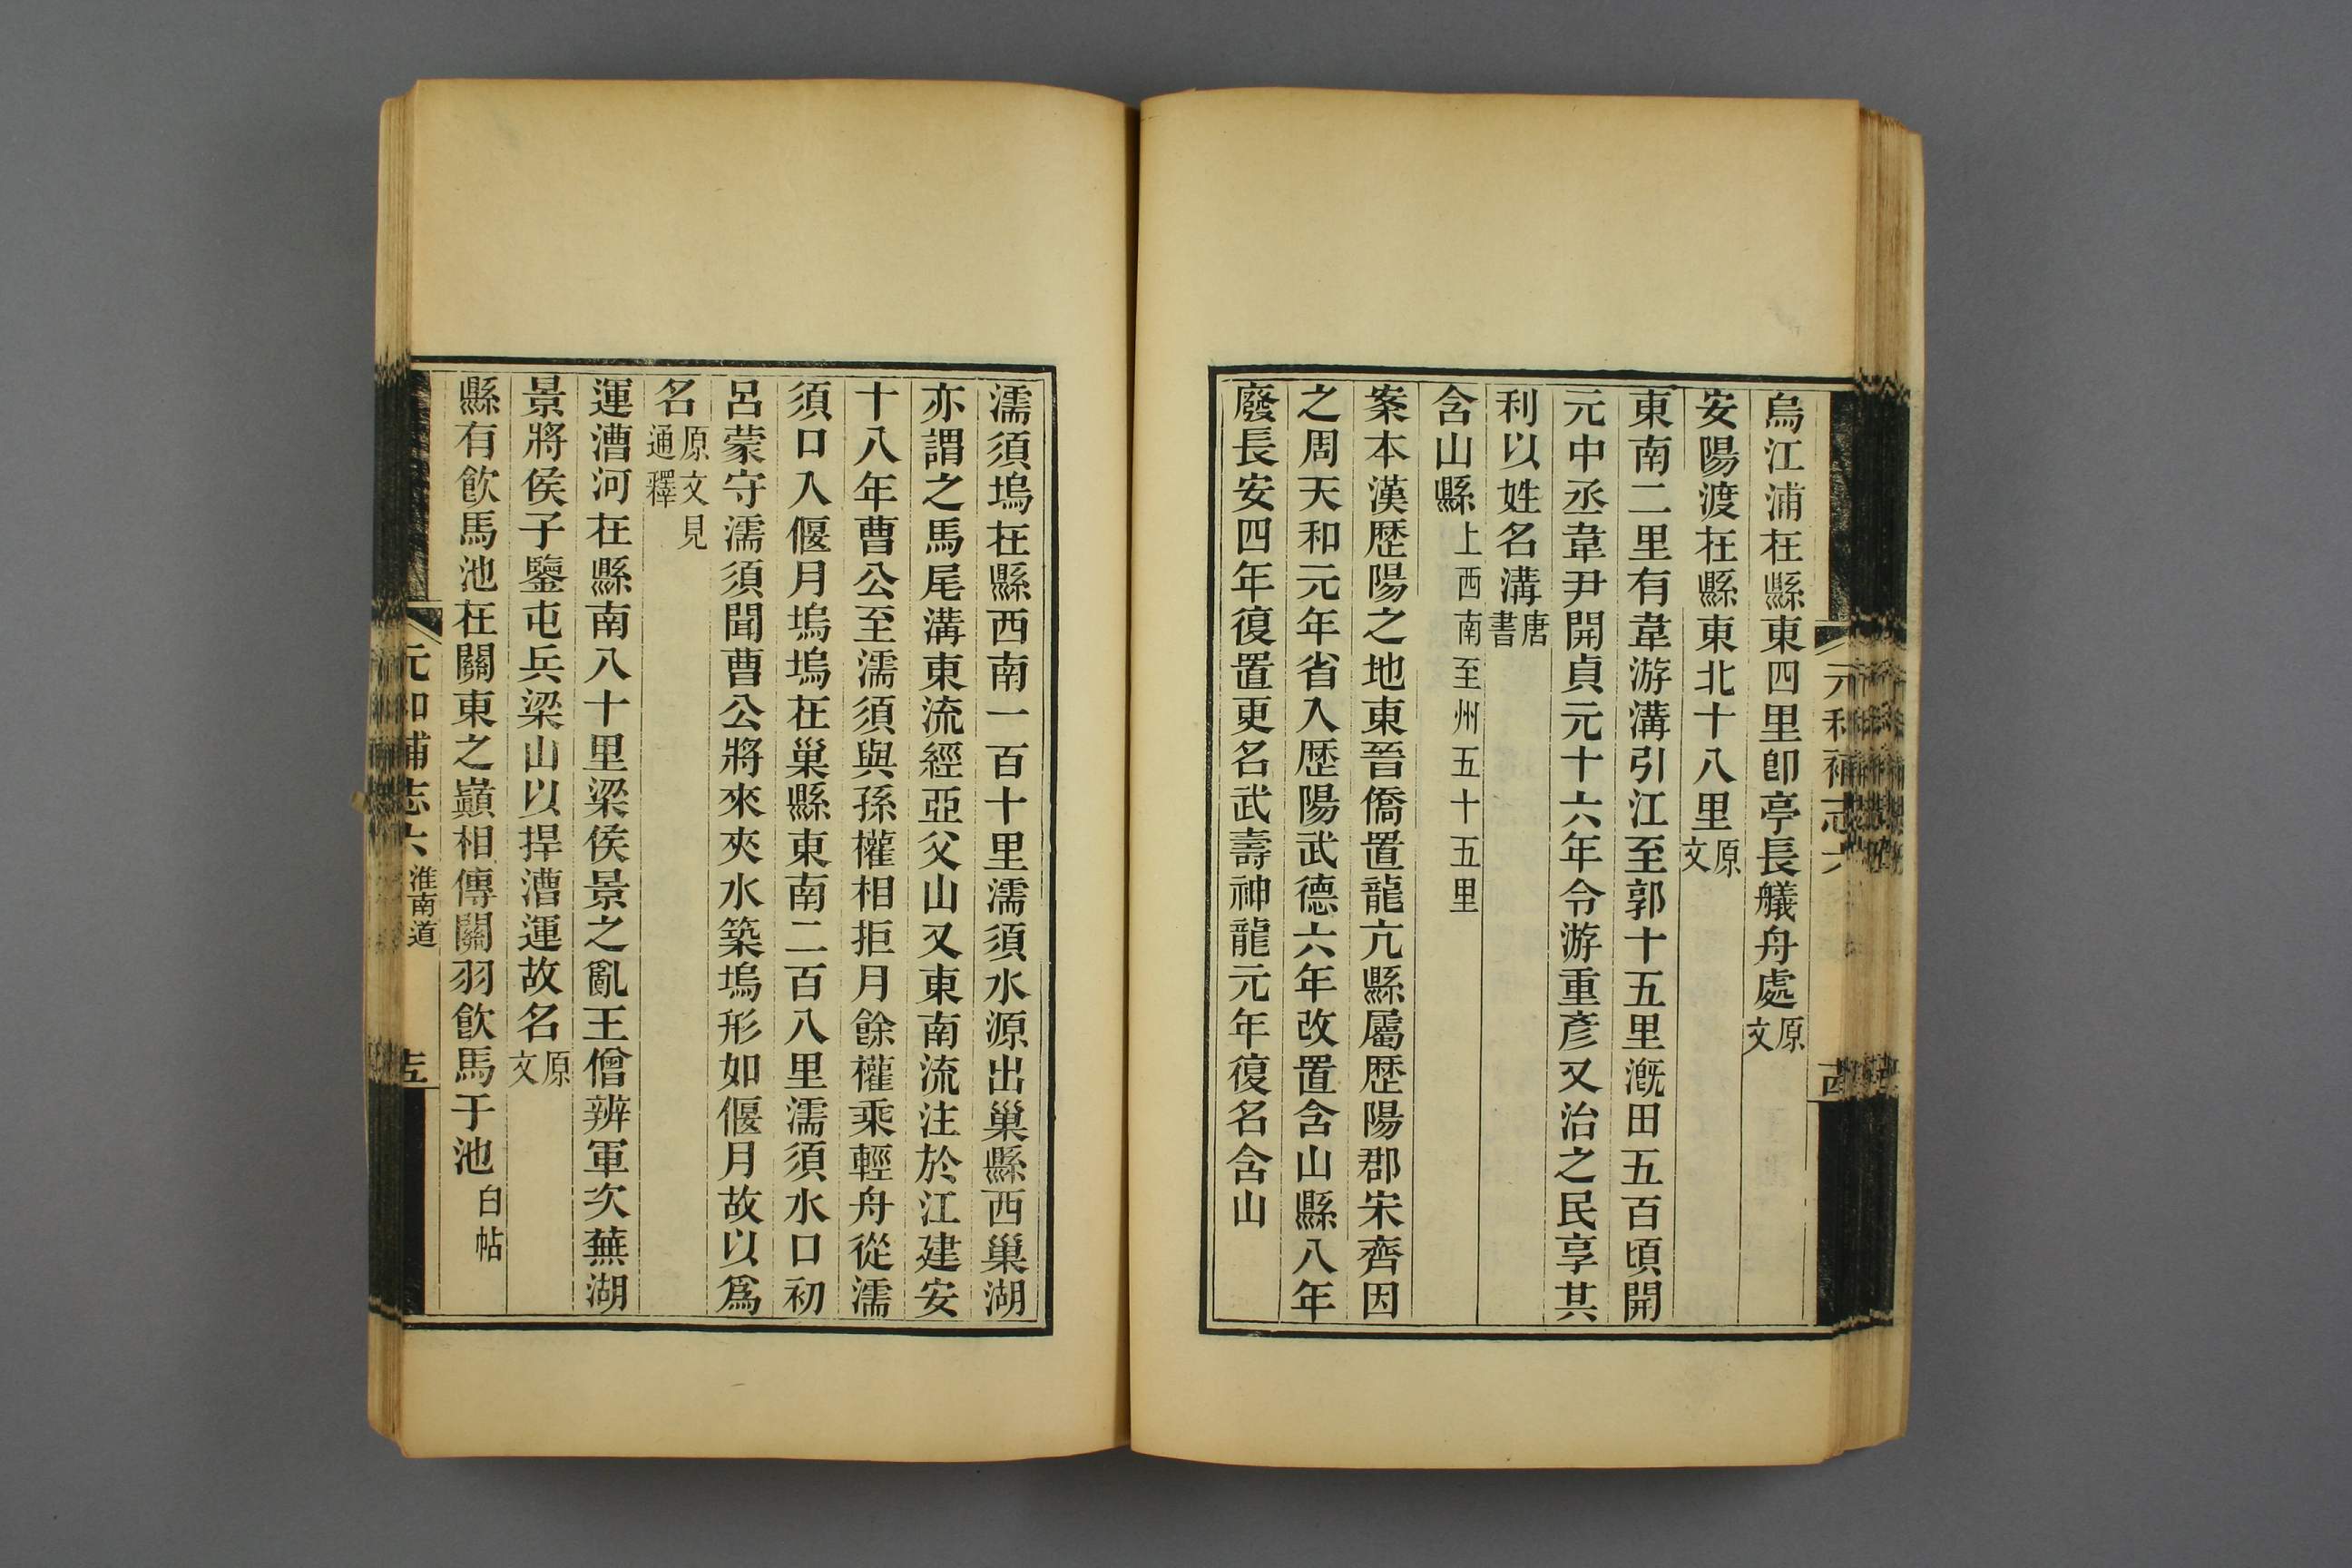 烏江浦在縣東四里卽亭長艤舟處原文
安陽渡在縣東北十八里原文
東南二里有韋游溝引江至郭十五里漑田五百頃開
元中丞韋尹開貞元十六年令游重彥又治之民享其
利以姓名溝唐書
含山縣上西南至州五十五里
案本漢歷陽之地東晉僑置龍亢縣屬歷陽郡宋齊因
之周天和元年省入歷陽武德六年改置含山縣八年
廢長安四年復置更名武壽神龍元年復名含山
濡須塢在縣西南一百十里濡須水源出巢縣西巢湖
亦謂之馬尾溝東流經亞父山又東南流注於江建安
十八年曹公至濡須與孫權相拒月餘權乘輕舟從濡
須口入偃月塢塢在巢縣東南二百八里濡須水口初
呂蒙守濡須聞曹公將來夾水築塢形如偃月故以爲
名原文見通釋
運漕河在縣南八十里梁侯景之亂王僧辨軍次蕪湖
景將侯子鑒屯兵梁山以捍漕運故名原文
縣有飮馬池在關東之巔相傳關羽飮馬于池白帖
元和補志六 淮南道 十五